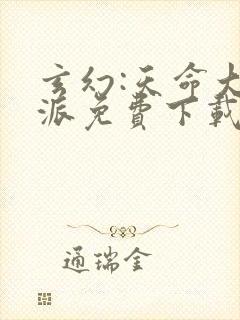 玄幻:天命大
派免費下載
通瑞金